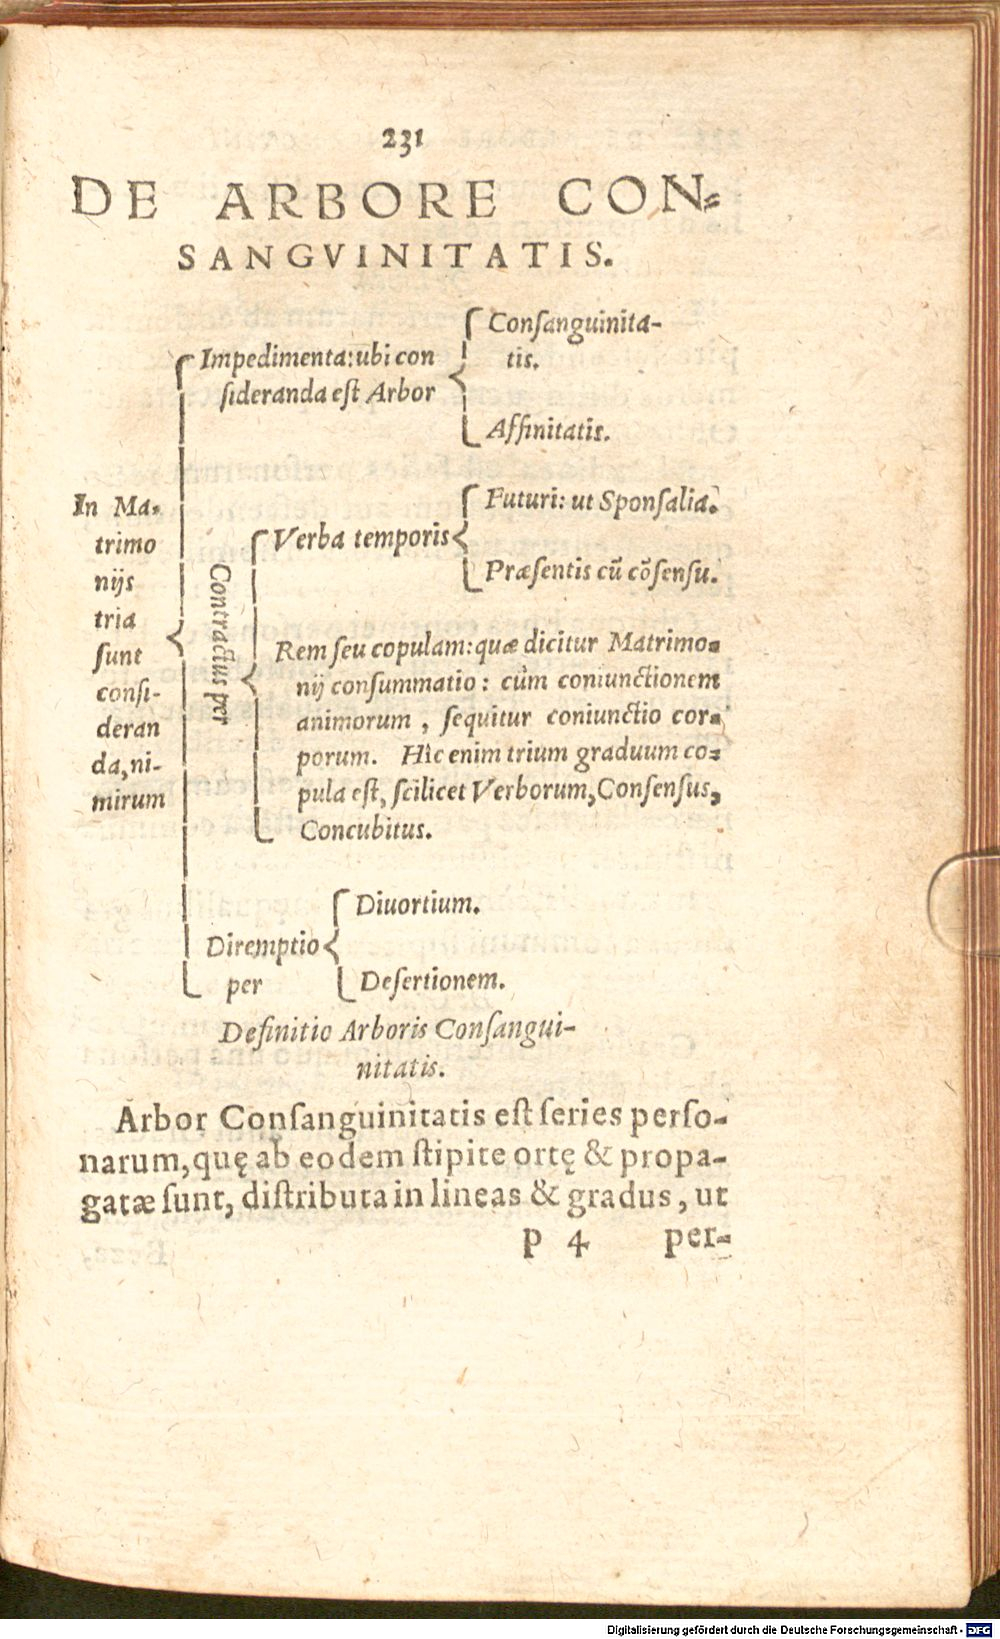 231
DE ARBORE CON-
SANGVINITATIS.
In Ma-
trimo
nijs
tria
sunt
consi-
deran
da, ni-
mirum
Impedimenta: ubi con
sideranda est Arbor
Consanguinita-
tis.
Affinitatis.
Contractus per
Verba temporis
Futuri: ut Sponsalia.
Præsentis cū cōsensu.
Rem seu copulam: quæ dicitur Matrimo-
nij consummatio: cùm coniunctionem
animorum, sequitur coniunctio cor-
porum. Hîc enim trium graduum co-
pula est, scilicet Verborum, Consensus,
Concubitus.
Diremptio
per
Diuortium.
Desertionem.
Definitio Arboris Consangui-
nitatis.
Arbor Consanguinitatis est series perso-
narum, quę ab eodem stipite ortę & propa-
gatæ sunt, distributa in lineas & gradus, ut
p 4 per-
Digitalisierung gefördert durch die Deutsche Forschungsgemeinschaft - DFG